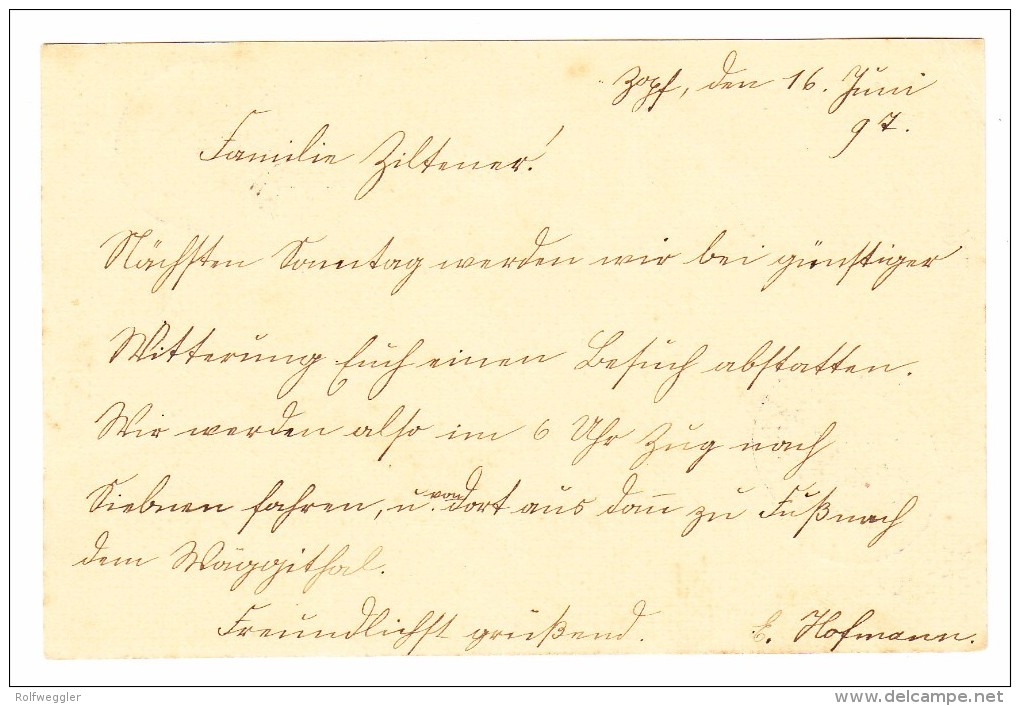 Zopf, den 16. Juni
97.
Familie Ziltener!
Nächsten Sonntag werden wir bei günstiger
Witterung Euch einen Besuch abstatten.
Wir werden also im 6 Uhr Zug nach
Siebnen fahren, u. von dort aus dan̅ zu Fuß nach
dem Wäggithal.
Freundlichst grüßend. E. Hofmann.
Rolfweggler
delcampe.net